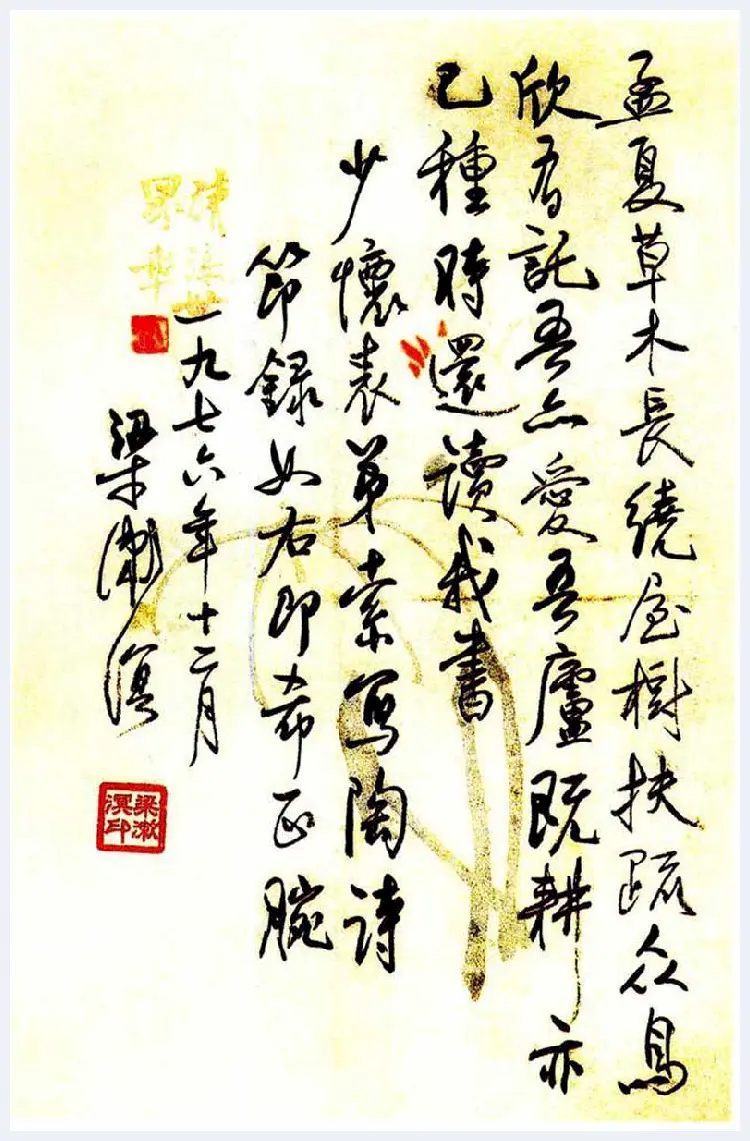 孟夏草木長繞屋樹扶疏众鳥
欣有託吾亦愛吾廬既耕亦
已種時還讀我書
少懷表弟索写陶诗
節錄如右即希正腕
一九七六年十二月
梁漱溟
梁漱溟印